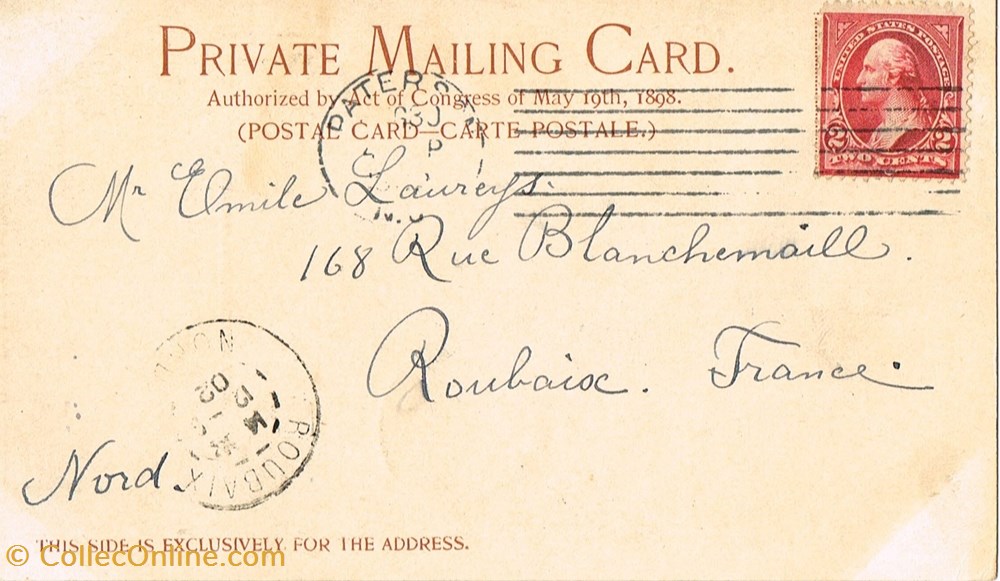 PRIVATE MAILING CARD.
Authorized by Act of Congress of May 19th, 1898.
(POSTAL CARD—CARTE POSTALE.)
UNITED STATES POSTAGE
2 2
TWO CENTS
PATERSON
N.J.
Mr Emile Laureys.
168 Rue Blanchemaill.
Roubaix. France.
ROUBAIX
02
Nord.
THIS SIDE IS EXCLUSIVELY FOR THE ADDRESS.
© CollecOnline.com